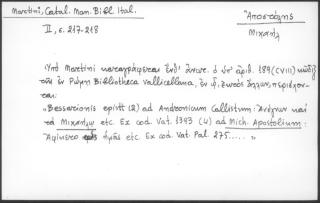 Martini, Catal. Man. Bibl. Ital.
II, σ. 217-218
Ἀποστόλης
Μιχαήλ
Ὑπὸ Martini καταγράφεται ἐνθ' ἀνωτ. ὁ ὑπ' ἀριθ. 189 (CVIII) κῶδιξ
τῆς ἐν Ρώμῃ Bibliotheca Vallicellana, ἐν ᾧ, ἐκτὸς ἄλλων, περιέχον-
ται:
"Bessarionis epistt (2) ad Andronicum Callistum:
τὰ Μιχαήλῳ etc. Ex cod. Vat. 1393 (4) ad Mich. Apostolium:
Ἀφίκετο ὡς ἡμᾶς etc Ex cod. Vat. Pal. 275..... "